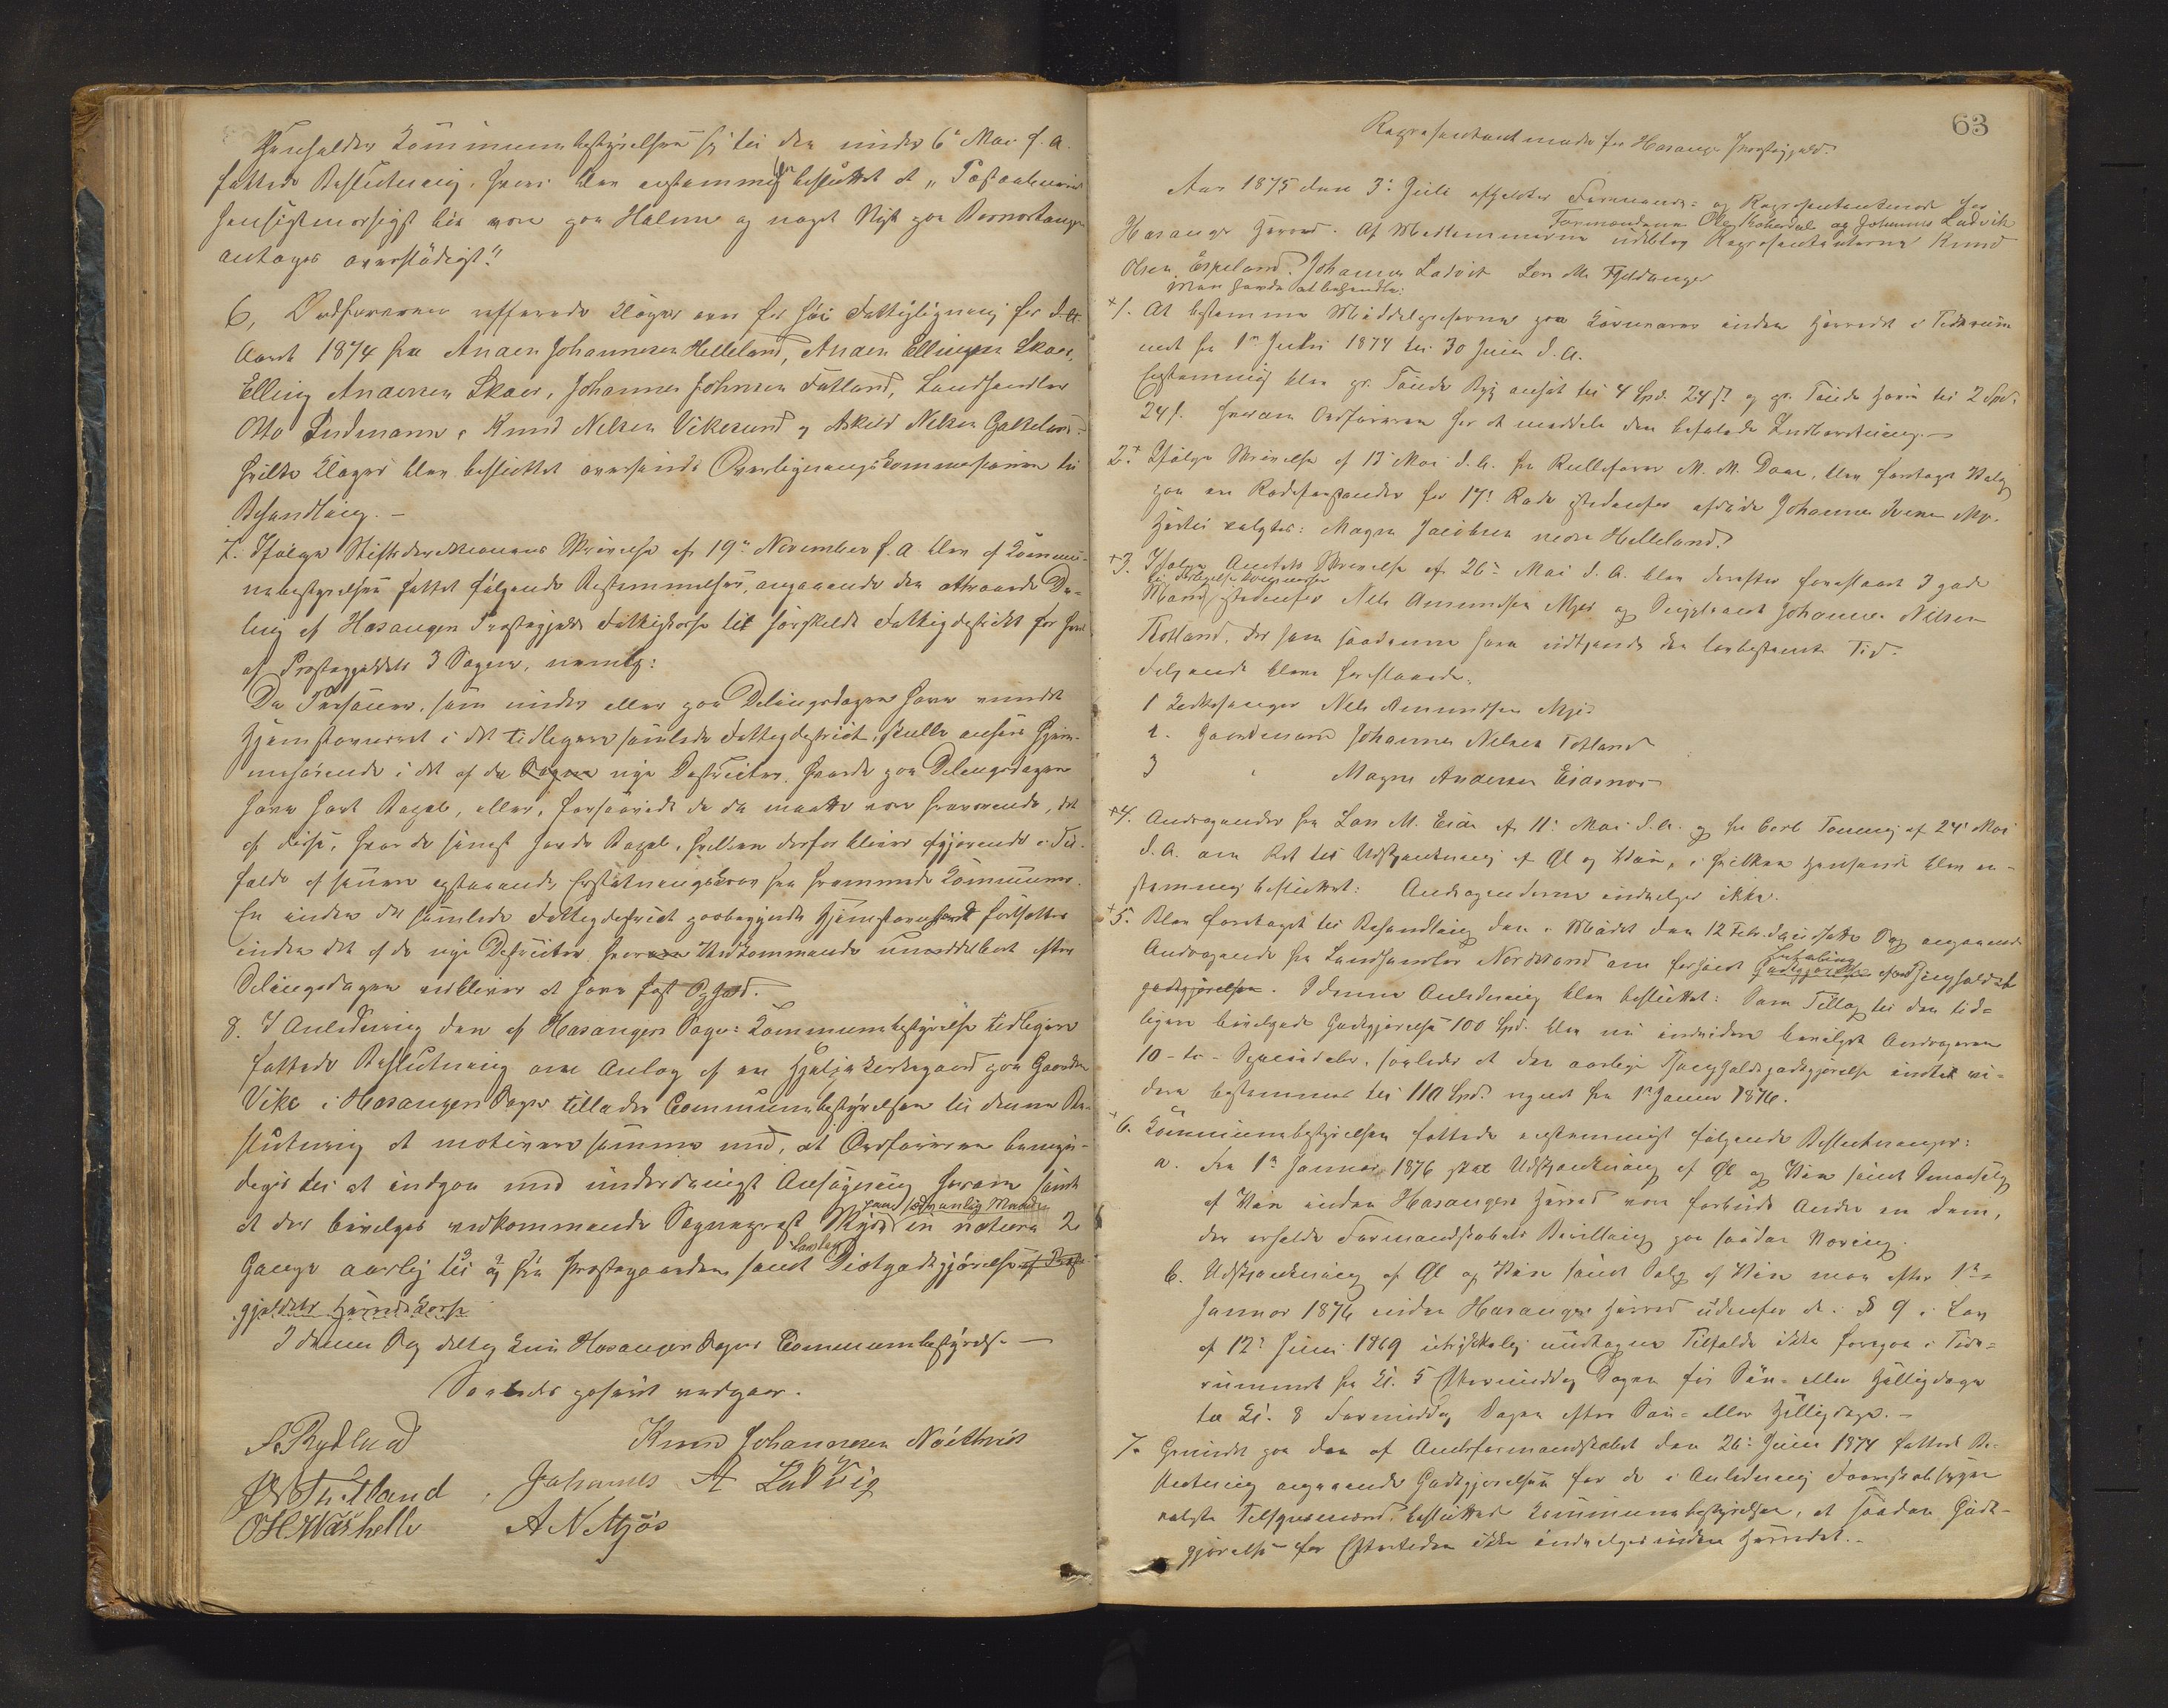 Henholder Kommunebestyrelsen sig til den under 6te Mai f. A.
fattede Beslutning, hvori blev enstemmig besluttet at "Postaabneri
hensigtmæssigst bør være paa Holme og noget Nyt paa Bernestangen
antages overflödigt."
6, Ordföreren refererede Klager over for höi Fattigligning for
Aaret 1874 fra Anders Johannesen Helleland, Anders Ellingsen Skaar,
Elling Andersen Skaar, Johannes Johnsen Fatland, Landhandler
Otto Ludmann, Knud Nelsen Vikesund og Askild Nelsen
hvilke Klager blev besluttet oversendt Overligningskommissionen til
Behandling. –
7. Ifölge Stiftsdirektionens Skrivelse af 19de November f. A. blev af Kommu-
nebestyrelsen fattet fölgende Bestemmelser, angaaende den attraaede De-
ling af Hosanger Præstegjelds Fattigkasse til særskilte Fattigdistrikt for hvert
af Præstegjeldets 3 Sogne, nemlig:
De Personer, som under eller paa Delingsdagen have vundet
Hjemstavnsret i det tidligere samlede Fattigdistrict, skulle ansees hjem-
mehörende i det af de Sogne nye Districter, hvor de paa Delingsdagen
have havt Bopæl, eller, forsaavidt de da maatte være fraværende, det
af disse, hvor de sidst havde Bopæl, hvilken derfor bliver afgjörende i Til-
fælde af senere opstaaende Erstatningskrav fra fremmede Kommuner.
En inden det samlede Fattigdistrict paabegyndt Hjemstavnshævd fortsættes
inden det af de nye Districter hvor Vedkommende umiddelbart efter
Delingsdagen vedbliver at have fast Ophold.
8. I Anledning den af Hosangers Sogns Kommunebestyrelse tidligere
fattede Beslutning om Anlæg af en Hjelpekirkegaard paa Gaarden
Vike i Hosangers Sogn tillader Communebestyrelsen til denne Be-
slutning at motivere samme med, at Ordföreren bemyn-
diges til at indgaa med underdanigst Ansögning herom samt
paa sædvanlig Maade
at der bevilges vedkommende Sogneprest Skyds in natura 2
Gange aarlig til og fra Præstegaarden samt Diætgodtgjörelse af Præste-
gjeldets Herredskasse
I denne Sag deltog kun Hosanger Sogns Communebestyrelse –
Saaledes passeret vedgaaes.
S. Rydland Knud Johannesen Nöttveit
Johannes A Ladvig
OHWashelle A N Mjös
63
Repræsentantmøde for Hosanger Præstegjeld.
Aar 1875 den 3die Juli afholdtes Formands- og Repræsentantmøde for
Formændene Ole Kokedal og Johannes Ladvik
Hosanger Herred. Af Medlemmerne udeblev Repræsentanterne Knud
Olsen Espeland, Johannes Ladvik Lars Ms Fjeldanger
Man havde at behandle:
1. At bestemme Middelpriserne paa Kornvarer inden Herredet i Tidsrum-
met fra 1ste Juli 1874 til 30 Juni d. A.
Enstemmig blev pr. Tönde Byg ansat til 4 Spd. 24 ß og pr. Tönde Havre til 2 Spd.
24 ß. hvorom Ordföreren har at meddele den befalede Indberetning. –
2. Ifölge Skrivelse af 13 Mai d. A. fra Rulleförer M. M. Daae, blev foretaget Valg
paa en Rodeforstander for 17de Rode istedenfor afdöde Johannes Iversen
Hertil valgtes: Magne Jacobsen nedre Helleland.
3. Ifölge Amtets Skrivelse af 26de Mai d. A. blev derefter foreslaaet 3 gode
Mænd istedenfor Nels Amundsen Mjös og Johannes Nilsen
Totland, der som saadanne have udtjent den lovbestemte Tid.
Fölgende bleve foreslaaede:
1 Kirkesanger Nels Amundsen Mjös
2. Gaardmand Johannes Nilsen Totland
3 " Magne Andersen Eidsnes
4. Andragender fra Lars M. Eide af 11te Mai d. A. og fra Carl Tonning af 24de Mai
d. A. om Ret til Udskjenkning af Øl og Vin, i hvilken Henseende blev en-
stemmig besluttet: Andragenderne indvilges ikke.
5. Blev foretaget til Behandling den i Mödet den 12 Feb. d. A. udsatte Sag angaaende
Andragende fra Landhandler Nordstrand om forhöiet Godtgjörelse af Thinghold
godtgjörelsen. I denne Anledning blev besluttet: Som Tillæg til den tid-
ligere bevilgede Godtgjörelse 100 Spd. blev nu endvidere bevilget Andrageren
10 – ti – Speciedaler, saaledes at den aarlige Thingholdsgodtgjörelse indtil vi-
dere bestemmes til 110 Spd. regnet fra 1ste Januar 1876.
6. Kommunebestyrelsen fattede enstemmigt fölgende Beslutninger:
a. Fra 1ste Januar 1876 skal Udskjenkning af Øl og Vin samt Smaasalg
af Vin inden Hosangers Herred være forbudt Andre en dem,
der erholde Formandskabets Bevilling paa saadan Næring.
b. Udskjenkning af Øl og Vin samt Salg af Vin maa efter 1ste
Januar 1876 inden Hosangers Herred udenfor de i § 9 i Lov
af 12te Juni 1869 udtrykkelig undtagne Tilfælde ikke foregaa i Tids-
rummet fra Kl. 5 Eftermiddag Dagen för Søn- eller Helligdage
til Kl. 8 Formiddag Dagen efter Søn- eller Helligdage. –
7. Grundet paa den af Amtsformandskabet den 26de Juni 1874 fattede Be-
slutning angaaende Godtgjörelsen for de i Anledning
valgte Tilsynsmænd, besluttede Kommunebestyrelsen, at saadan Godt-
gjörelse for Eftertiden ikke indvilges inden Herredet. –